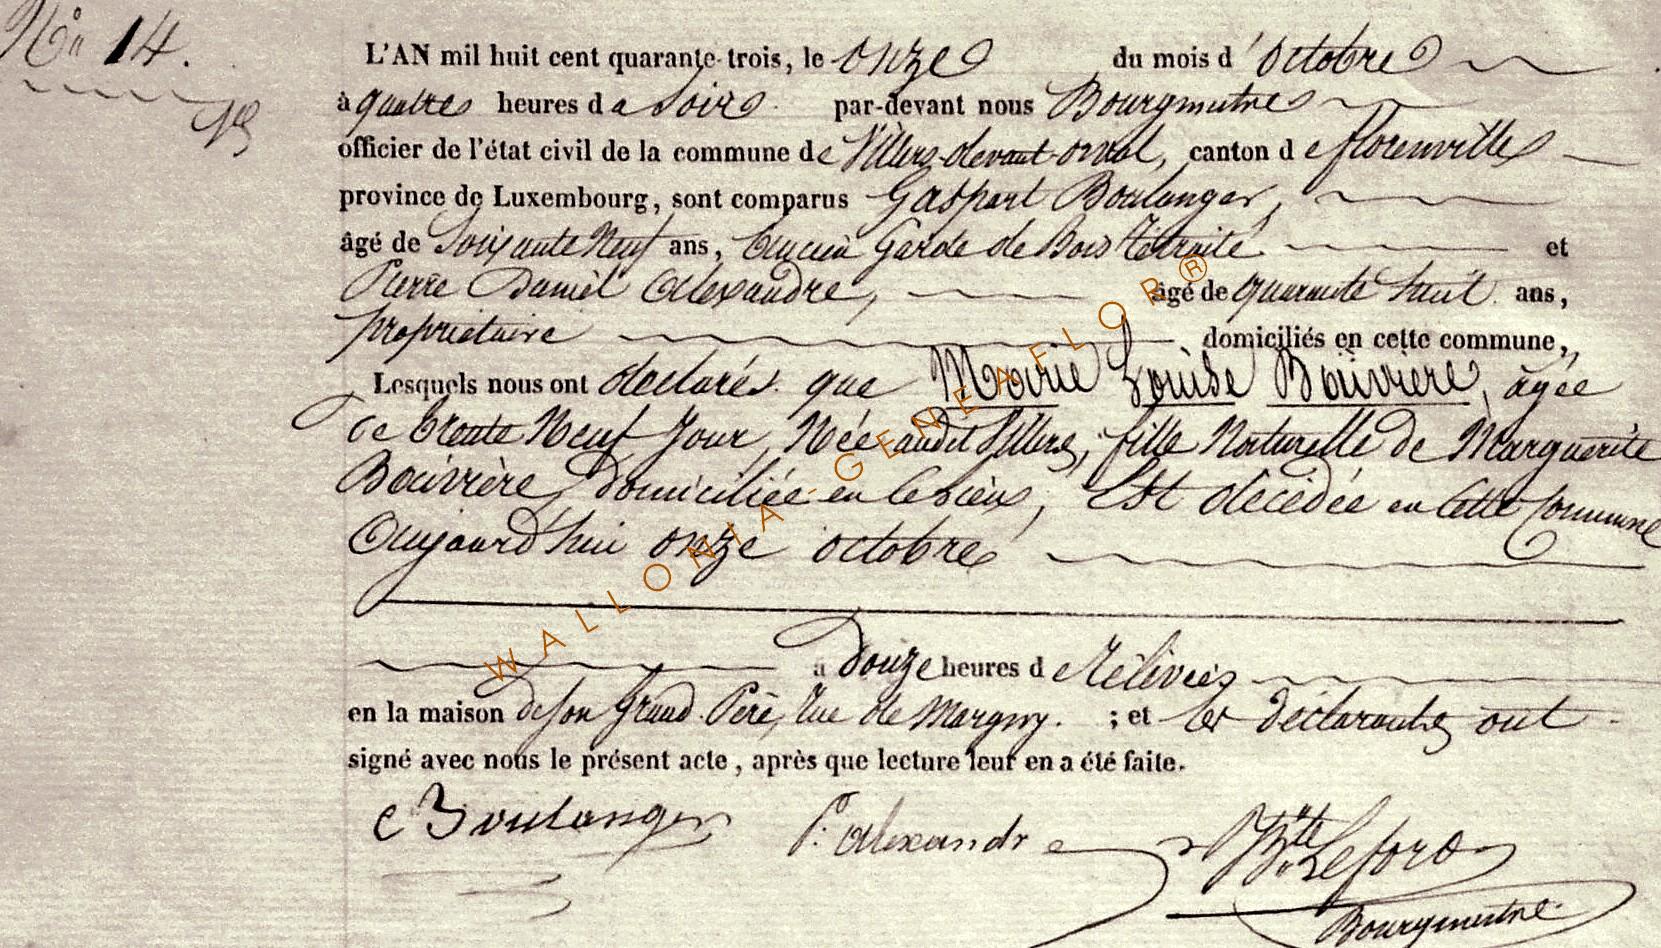 No 14.
L'AN mil huit cent quarante-trois, le onze du mois d'octobre
à quatre heures du soire par-devant nous Bourgmestre
officier de l'état civil de la commune de Villers-devant-orval, canton de florenville
province de Luxembourg, sont comparus Gaspart Boulanger,
âgé de Soixante Neuf ans, Encien Garde de Bois Retraité et
Pierre Daniel Alexandre, âgé de quarante huit ans,
propriétaire domiciliés en cette commune,
Lesquels nous ont declarés que Marie Louise Bouvriere, âgée
de trente Neuf Jour, Née audit Villers, fille Naturelle de Marguerite
Bouvrière, domiciliée en ce lieux, Est decédée en Cette Commune
Aujourd'hui onze octobre
à douze heures de Rélévées
en la maison de son Grand Père, Rue de Margny. ; et les déclarants ont
signé avec nous le présent acte, après que lecture leur en a été faite.
Boulanger P. Alexandre Bte Lefort
Bourgmestre
WALLONIA-GENEAFLOR®